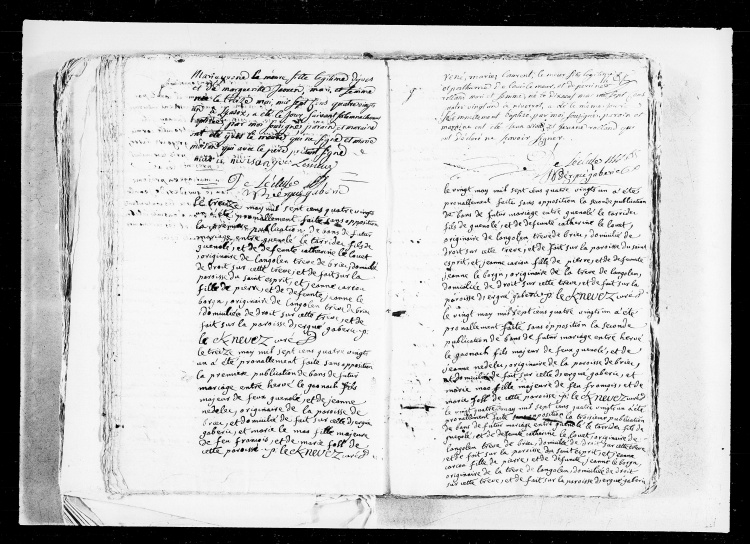 le mevre fille legitime
et de marguerite mari, et femme
née le treize mai, mil sept cens quatre vingt
a été le jour suivant
baptisée par moi parain et maraine
ont été yves le qui signe et marie
qui avec le père présent signé
le treize may mil sept cens quatre vingts
un a été pronallement faite sans opposition
la premiere publication de bans de futur
mariage entre guenolé le tarrider fils de
guenolé, et de defunte catherine le louet
originaire de langolen trève de briec, domicilié
de droit sur cette treve, et de fait sur la
paroisse du saint esprit, et jeanne cariou
fille de pierre, et de defunte jeanne le
borgn, originaire de langolen treve de briec
domiciliée de droit sur cette treve, et de
fait sur la paroisse d'ergué gaberic p.
le Knevez curé
le treize may mil sept cens quatre vingt
un a été pronallement faite sans opposition
la premiere publication de bans de futur
mariage entre hervé le gaonach fils
majeur de feux guenolé, et de jeanne
nedelec, originaire de la paroisse de
briec, et domicilié de fait sur cette d'ergué
gaberic, et marie le mao fille majeure
de feu françois, et de marie foll de
cette paroisse p. le Knevez curé
rené, marie, laurent, le meur fils
et de louis le meur, et de perrine
mari et femme, né le dixneuf mai mil sept cent
quatre vingt un a été le même jour
baptisé, par moi soussigné, parain et
maraine ont été jean et jeanne qui
ont déclaré ne savoir signer
le vingt may mil sept cens quatre vingt un a été
pronallement faite sans opposition la seconde publication
de bans de futur mariage entre guenolé le tarrider
fils de guenolé, et de defunte catherine le louet,
originaire de langolen treve de briec, domicilié de
droit sur cette treve, et de fait sur la paroisse du saint
esprit, et jeanne cariou fille de pierre, et de defunte
jeanne le borgn, originaire de la trève de langolen,
domiciliée de droit sur cette treve, et de fait sur la
paroisse d'ergué gaberic p. le Knevez curé
le vingt may mil sept cens quatre vingt un a été
pronallement faite sans opposition la seconde
publication de bans de futur mariage entre hervé
le gaonach fils majeur de feux guenolé, et de
jeanne nedelec, originaire de la paroisse de briec,
et domicilié de fait sur cette d'ergué gaberic, et
marie mao fille majeure de feu françois et de
marie foll de cette paroisse p. le Knevez curé
le vingt quatre may mil sept cens quatre vingt un a été
pronallement faite sans opposition la troisieme publication
de bans de futur mariage entre guenolé le tarrider fils de
guenolé, et de defunte catherine le louet, originaire de
langolen treve de briec, domicilié de droit sur cette treve
et de fait sur la paroisse du saint esprit, et jeanne
cariou fille de pierre, et de defunte jeanne le borgn,
originaire de la treve de langolen, domiciliée de droit
sur cette treve, et de fait sur la paroisse d'ergué gaberic